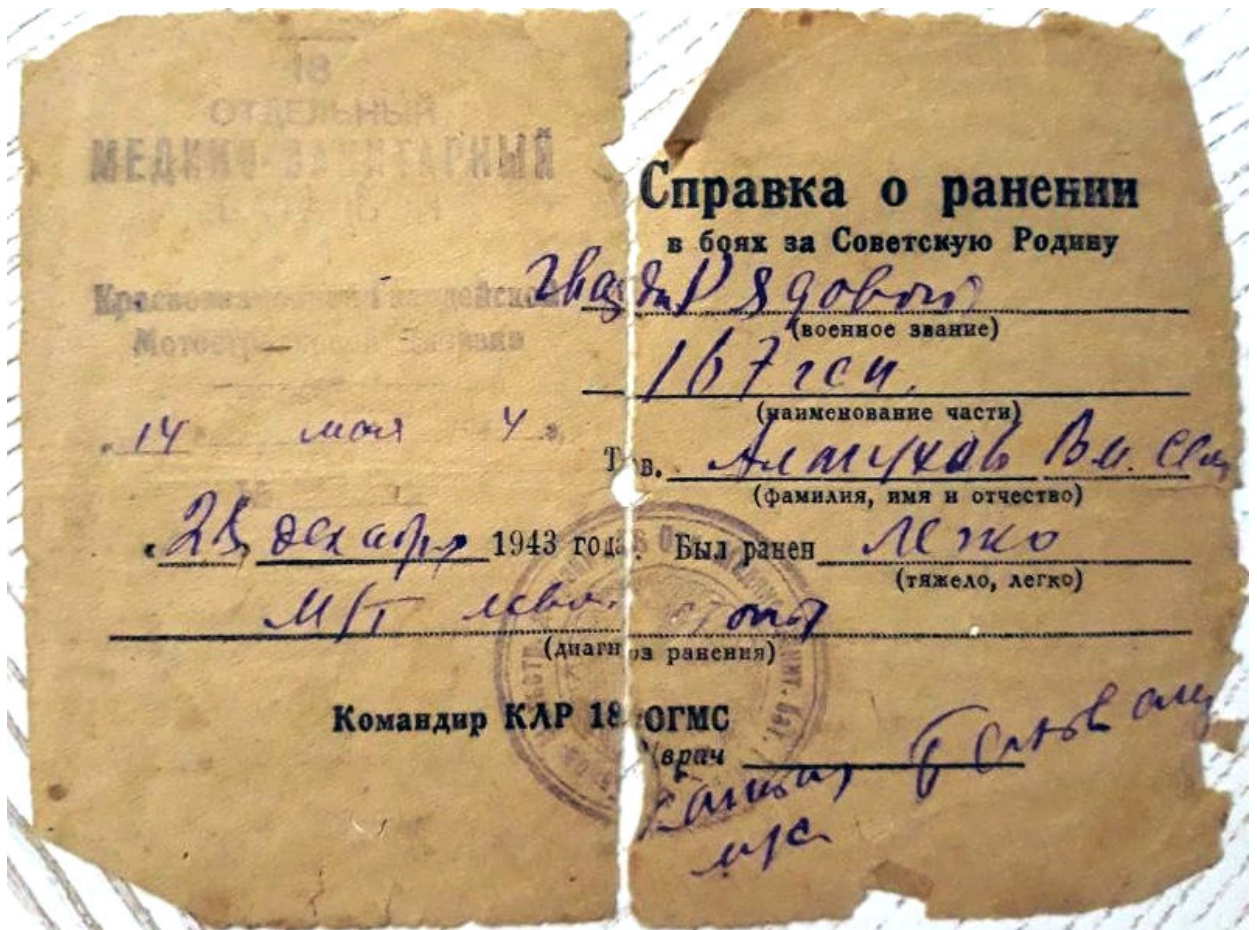 18
ОТДЕЛЬНЫЙ
МЕДИКО-САНИТАРНЫЙ
Краснознаменной Гвардейской
Мотострелковой Дивизии
„14 мая 4 г.
Справка о ранении
в боях за Советскую Родину
Гвардии Рядовой
(военное звание)
167 гсп.
(наименование части)
Тов.
(фамилия, имя и отчество)
декабря 1943 года. Был ранен легко
(тяжело, легко)
М/Т левой стопы
(диагноз ранения)
Командир КЛР 18 ОГМС
врач
м/с